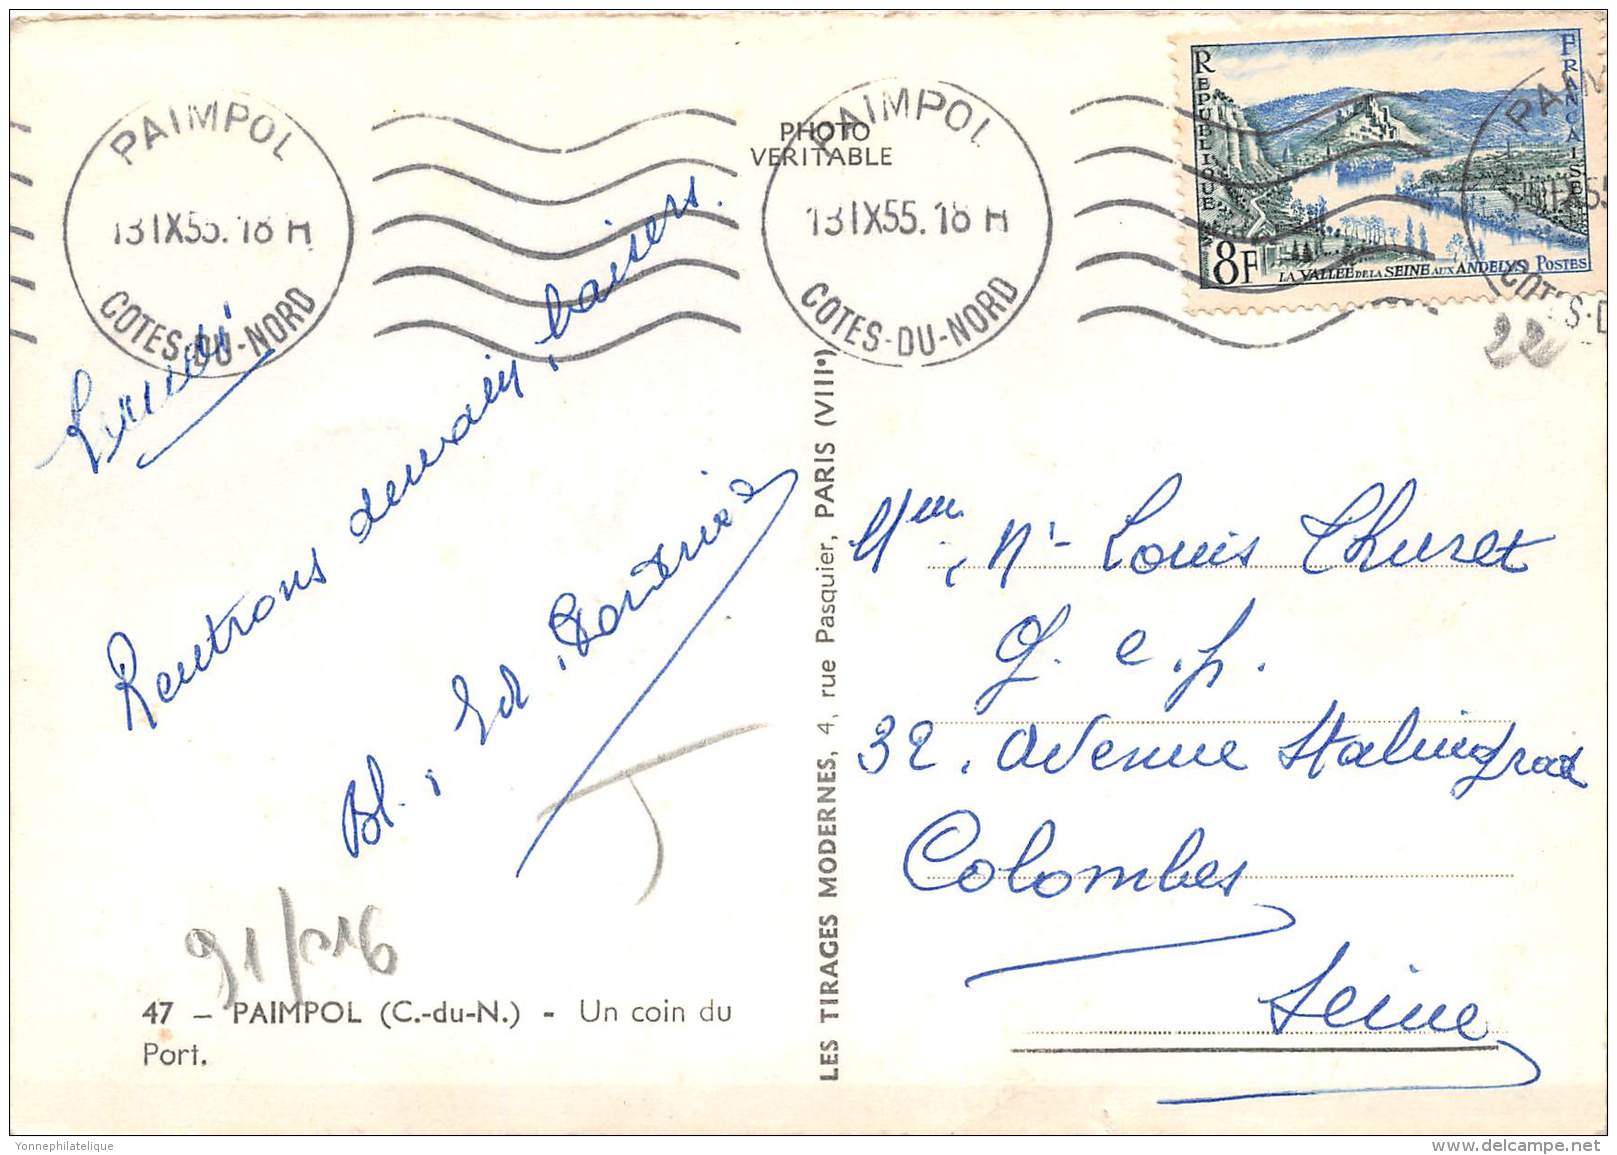 PAIMPOL
13 IX 55. 18 H
COTES-DU-NORD
PHOTO
VERITABLE
PAIMPOL
13 IX 55. 18 H
COTES-DU-NORD
REPUBLIQUE
FRANÇAISE
8F
LA VALLEE DE LA SEINE AUX ANDELYS POSTES
22
Lundi
Rentrons demain, baisers.
Bl., Ed.
91/316
47 – PAIMPOL (C.-du-N.) - Un coin du
Port.
LES TIRAGES MODERNES, 4, rue Pasquier, PARIS (VIIIe)
Mme, Mr Louis Thuret
32, avenue Stalingrad
Colombes
Seine
Yonnephilatelique
delcampe.net